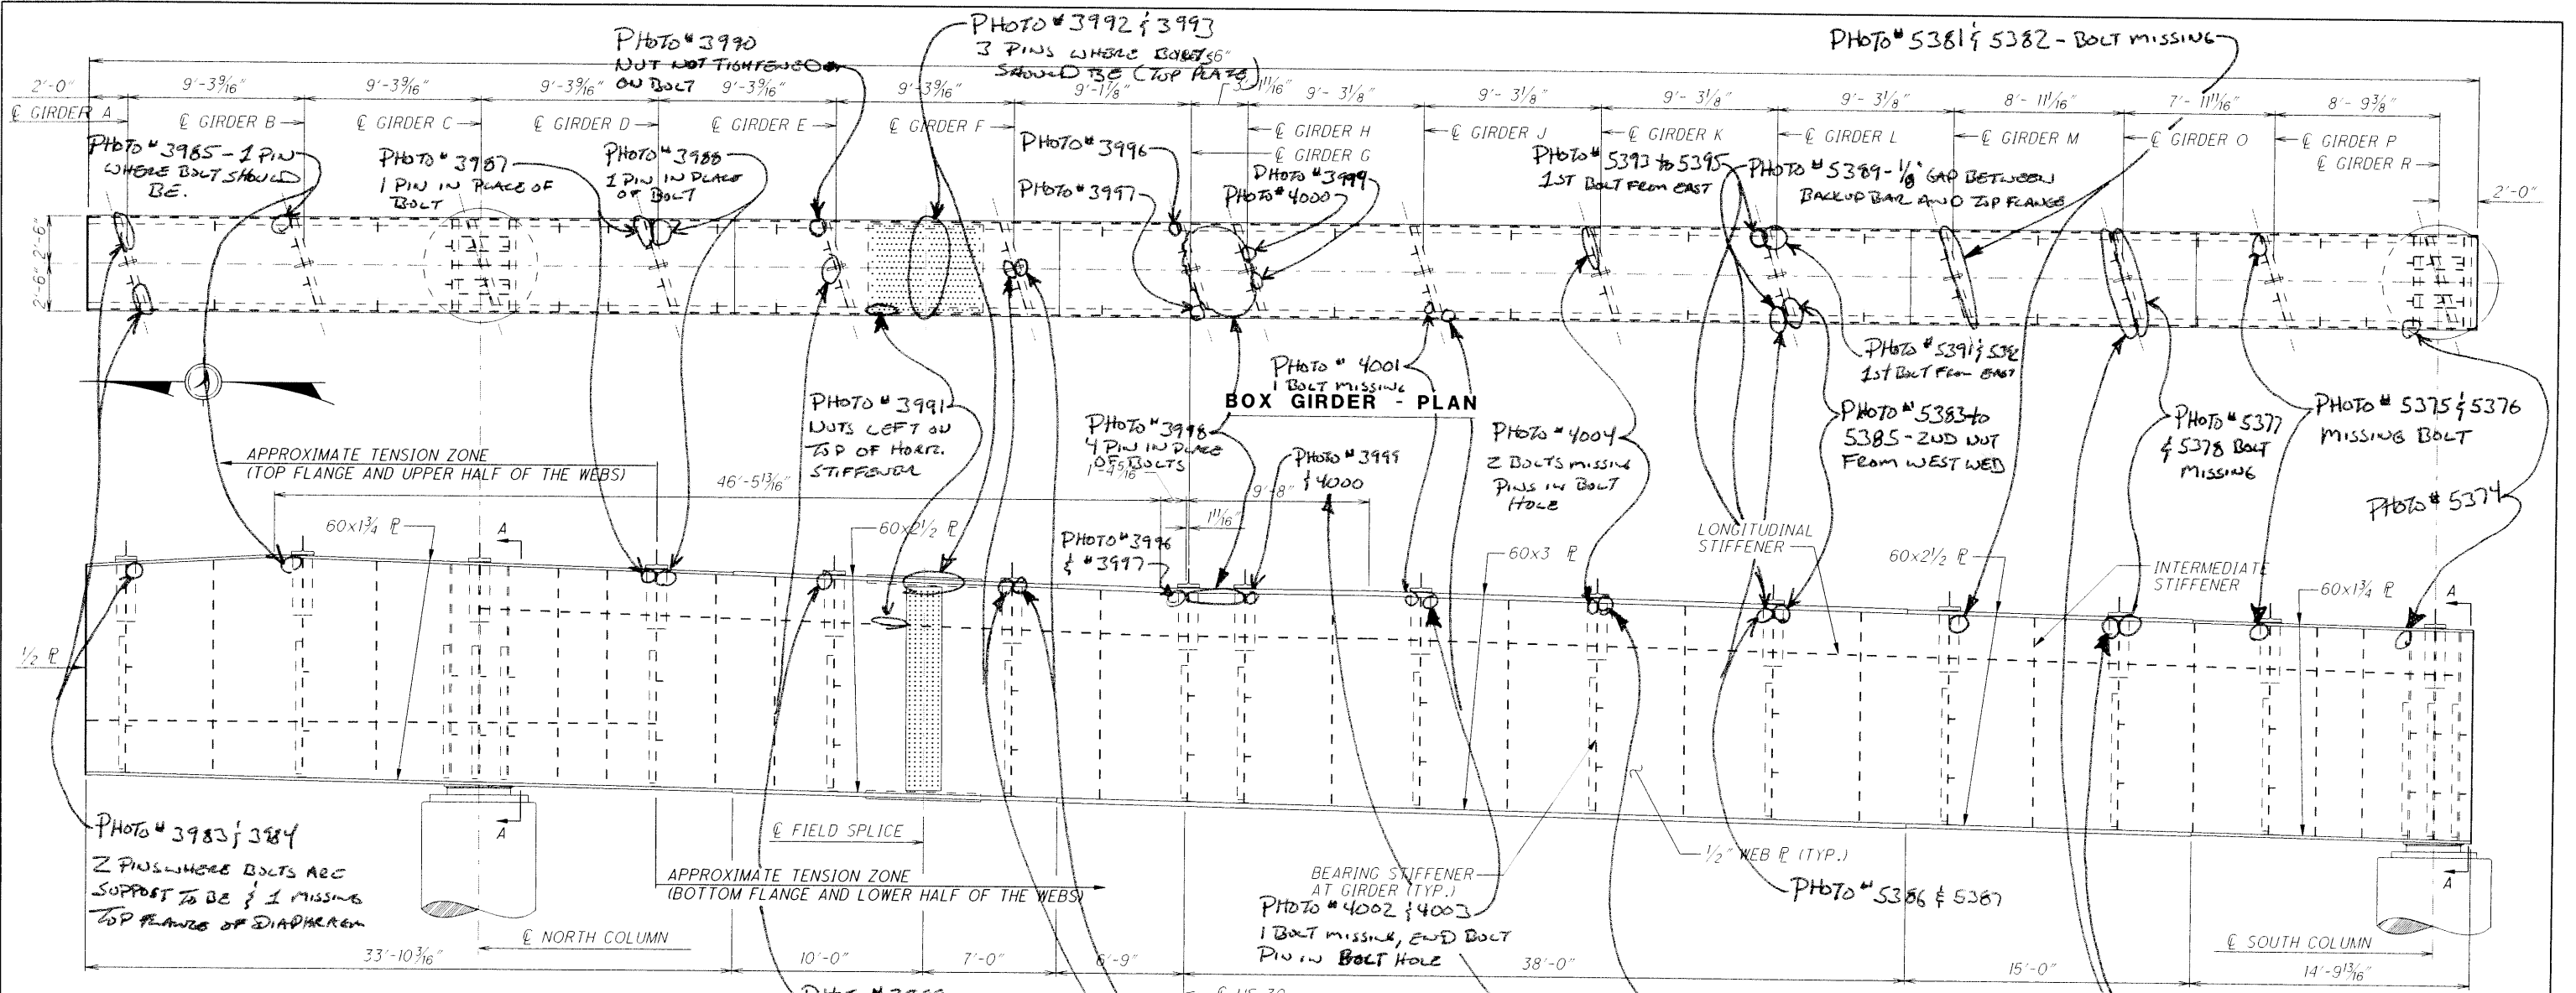 PHOTO # 3990
NUT NOT TIGHTENED
ON BOLT
PHOTO # 3992 & 3993
3 PINS WHERE BOLTS
SHOULD BE (TOP PLATE)
PHOTO # 5381 & 5382 - BOLT MISSING
2'-0"
9'-3 9/16"
9'-3 9/16"
9'-3 9/16"
9'-3 9/16"
9'-3 9/16"
9'-1 7/8"
3'-1 11/16"
9'- 3 1/8"
9'- 3 1/8"
9'- 3 1/8"
9'- 3 1/8"
8'- 11 1/16"
7'- 11 11/16"
8'- 9 3/8"
℄ GIRDER A
℄ GIRDER B
℄ GIRDER C
℄ GIRDER D
℄ GIRDER E
℄ GIRDER F
℄ GIRDER H
℄ GIRDER G
℄ GIRDER J
℄ GIRDER K
℄ GIRDER L
℄ GIRDER M
℄ GIRDER O
℄ GIRDER P
℄ GIRDER R
PHOTO # 3985 - 1 PIN
WHERE BOLT SHOULD
BE.
PHOTO # 3987
1 PIN IN PLACE OF
BOLT
PHOTO # 3988
1 PIN IN PLACE
OF BOLT
PHOTO # 3996
PHOTO # 3997
PHOTO # 3999
PHOTO # 4000
PHOTO # 5393 to 5395
1ST BOLT FROM EAST
PHOTO # 5389 - 1/8" GAP BETWEEN
BACKUP BAR AND TOP FLANGE
2'-0"
2'-6"
2'-6"
PHOTO # 3991
NUTS LEFT ON
TOP OF HORIZ.
STIFFENER
PHOTO # 4001
1 BOLT MISSING
BOX GIRDER - PLAN
PHOTO # 3998
4 PIN IN PLACE
OF BOLTS
PHOTO # 3999
& 4000
PHOTO # 4004
2 BOLTS MISSING
PINS IN BOLT
HOLE
PHOTO # 5391 & 5392
1st BOLT FROM EAST
PHOTO # 5383 to
5385 - 2ND NUT
FROM WEST WEB
PHOTO # 5377
& 5378 BOLT
MISSING
PHOTO # 5375 & 5376
MISSING BOLT
PHOTO # 5374
APPROXIMATE TENSION ZONE
(TOP FLANGE AND UPPER HALF OF THE WEBS)
46'-5 13/16"
9'-8"
1 11/16"
60x1 3/4 ℙ
A
60x2 1/2 ℙ
PHOTO # 3996
& # 3997
60x3 ℙ
LONGITUDINAL
STIFFENER
60x2 1/2 ℙ
INTERMEDIATE
STIFFENER
60x1 3/4 ℙ
A
1/2 ℙ
PHOTO # 3983 & 3984
2 PINS WHERE BOLTS ARE
SUPPOST TO BE & 1 MISSING
TOP FLANGE OF DIAPHRAGM
A
℄ FIELD SPLICE
APPROXIMATE TENSION ZONE
(BOTTOM FLANGE AND LOWER HALF OF THE WEBS)
BEARING STIFFENER
AT GIRDER (TYP.)
PHOTO # 4002 & 4003
1 BOLT MISSING, END BOLT
PIN IN BOLT HOLE
1/2" WEB ℙ (TYP.)
PHOTO # 5386 & 5387
A
℄ NORTH COLUMN
℄ SOUTH COLUMN
33'-10 3/16"
10'-0"
7'-0"
6'-9"
38'-0"
15'-0"
14'-9 13/16"